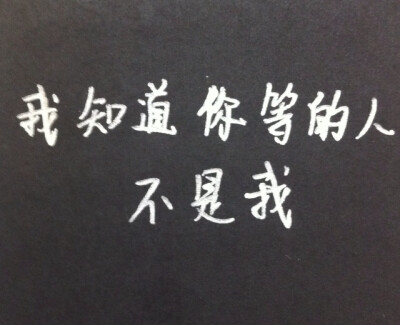 我知道你等的人
不是我